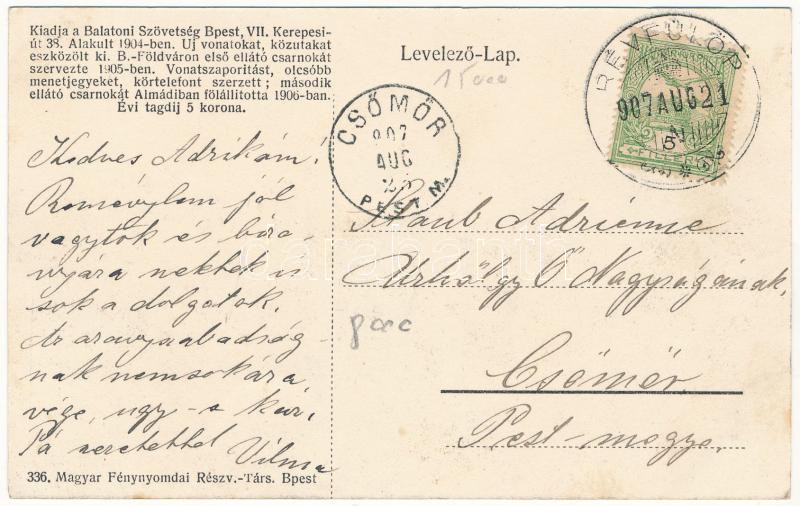 Kiadja a Balatoni Szövetség Bpest, VII. Kerepesi-
út 38. Alakult 1904-ben. Uj vonatokat, közutakat
eszközölt ki. B.-Földváron első ellátó csarnokát
szervezte 1905-ben. Vonatszaporitást, olcsóbb
menetjegyeket, körtelefont szerzett; második
ellátó csarnokát Almádiban fölállitotta 1906-ban.
Évi tagdij 5 korona.
Levelező-Lap.
15000
RÉVFÜLÖP
907 AUG 21
FILLÉR
CSÖMÖR
907
AUG
PEST M.
Kedves Adrikám!
Remélylem jól
vagytok és bora-
nektek is
sok a dolgotok.
Az aranyszabadság-
nak nemsokára
vége, ugy-s kár,
Pá szeretettel
Vilma
Adrienne
Urhölgy Ő Nagyságának,
Csömör
Pest-megye.
8000
336. Magyar Fénynyomdai Részv.-Társ. Bpest